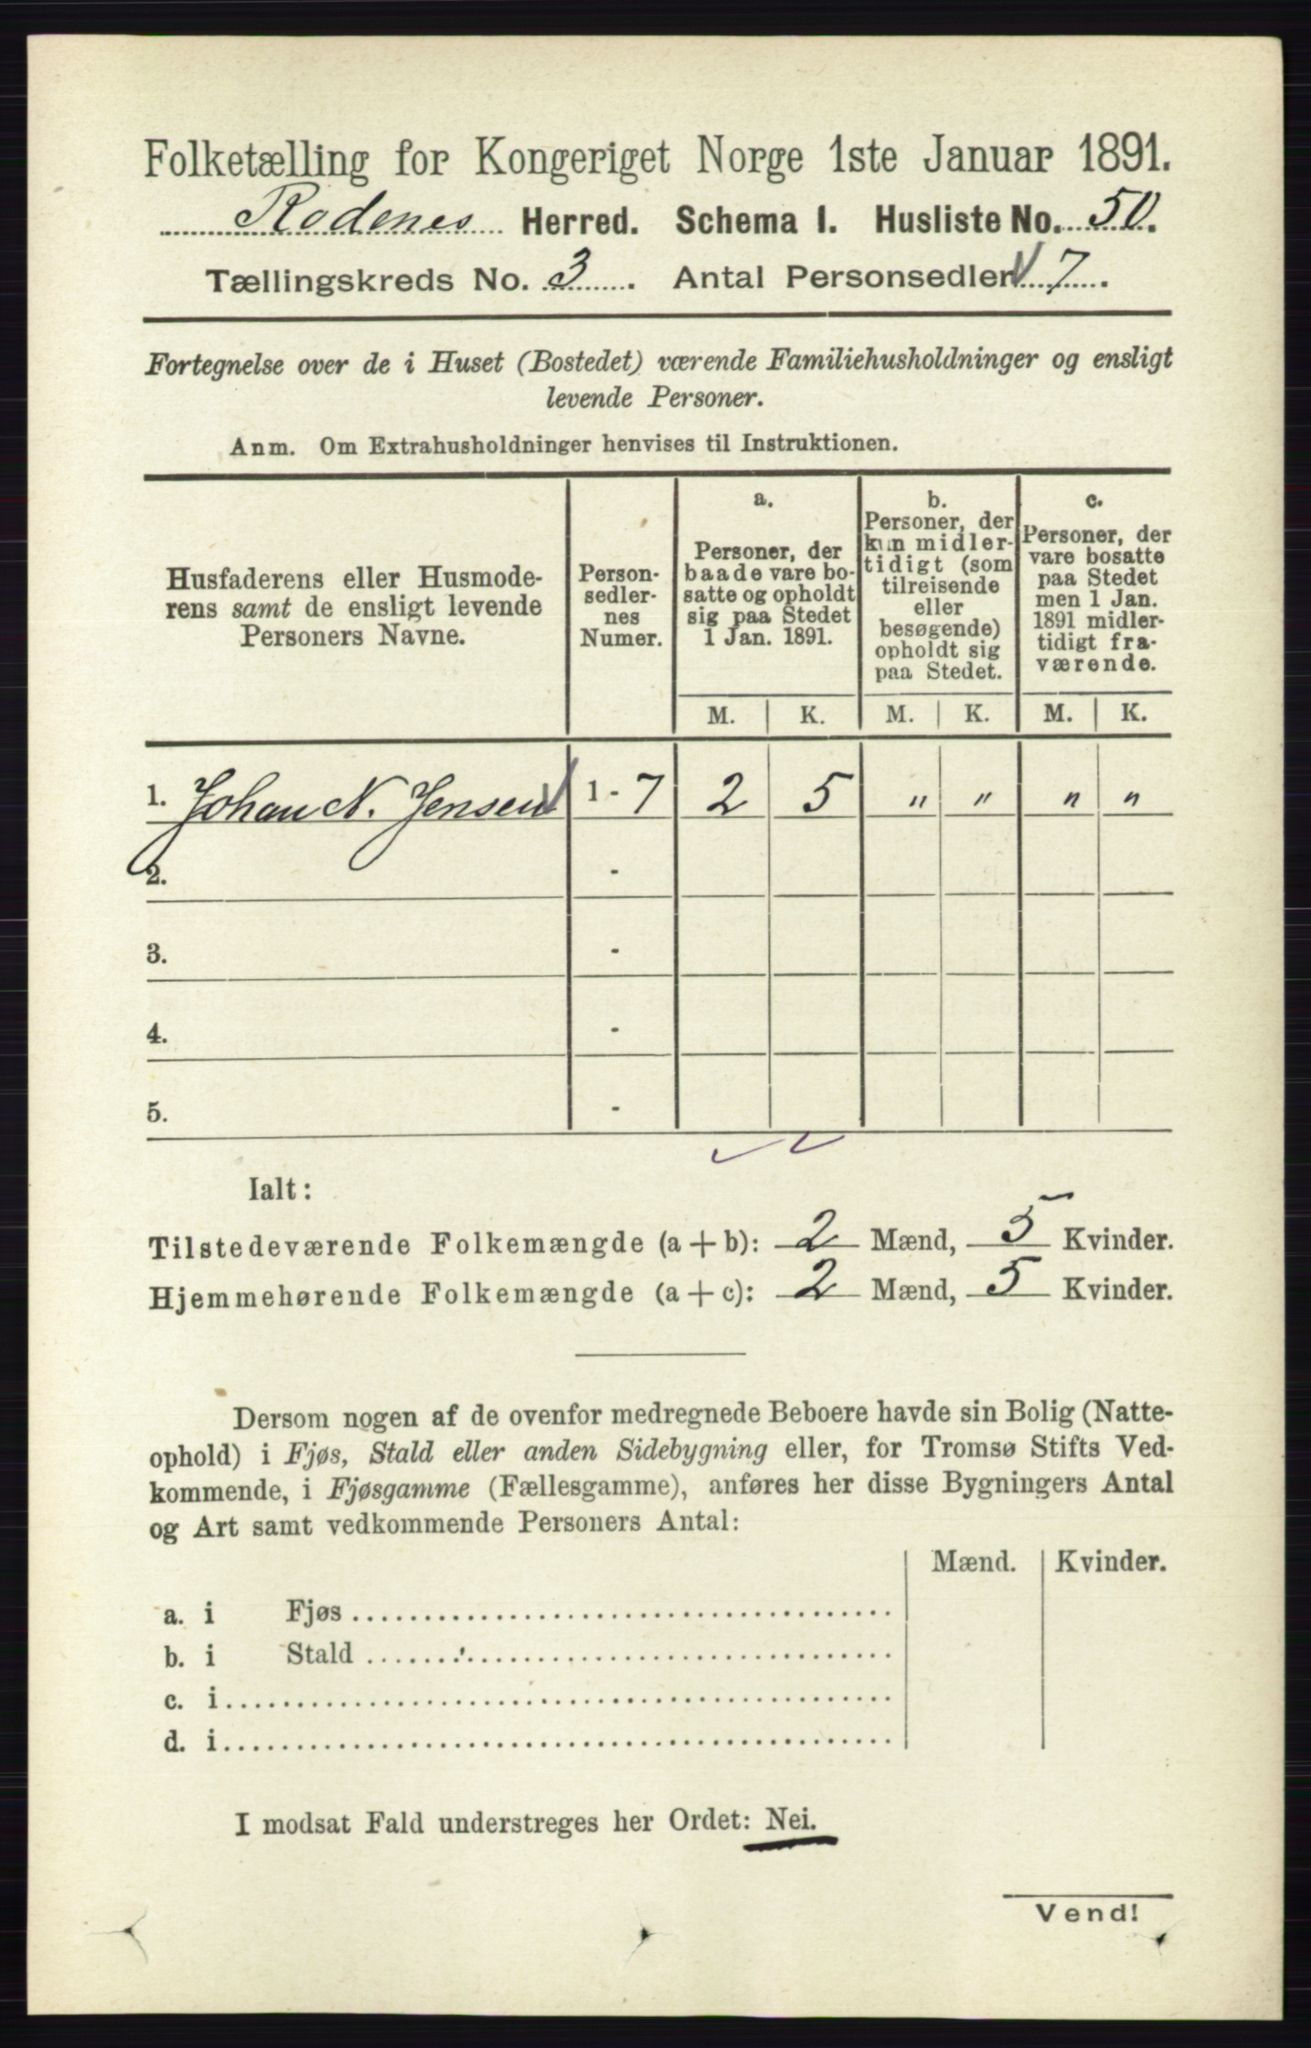 Folketælling for Kongeriget Norge 1ste Januar 1891.
Rødenes Herred. Schema I. Husliste No. 50.
Tællingskreds No. 3. Antal Personsedler 7.
Fortegnelse over de i Huset (Bostedet) værende Familiehusholdninger og ensligt
levende Personer.
Anm. Om Extrahusholdninger henvises til Instruktionen.
Husfaderens eller Husmode-
rens samt de ensligt levende
Personers Navne.
Person-
sedler-
nes
Numer.
a.
Personer, der
baade vare bo-
satte og opholdt
sig paa Stedet
1 Jan. 1891.
b.
Personer, der
kun midler-
tidigt (som
tilreisende
eller
besøgende)
opholdt sig
paa Stedet.
c.
Personer, der
vare bosatte
paa Stedet
men 1 Jan.
1891 midler-
tidigt fra-
værende.
M. K. M. K. M. K.
1. Johan N. Jensen 1 - 7 2 5 " " " "
2. -
3. -
4. -
5. -
Ialt:
Tilstedeværende Folkemængde (a + b): 2 Mænd, 5 Kvinder.
Hjemmehørende Folkemængde (a + c): 2 Mænd, 5 Kvinder.
Dersom nogen af de ovenfor medregnede Beboere havde sin Bolig (Natte-
ophold) i Fjøs, Stald eller anden Sidebygning eller, for Tromsø Stifts Ved-
kommende, i Fjøsgamme (Fællesgamme), anføres her disse Bygningers Antal
og Art samt vedkommende Personers Antal:
Mænd. Kvinder.
a. i Fjøs
b. i Stald
c. i
d. i
I modsat Fald understreges her Ordet: Nei.
Vend!